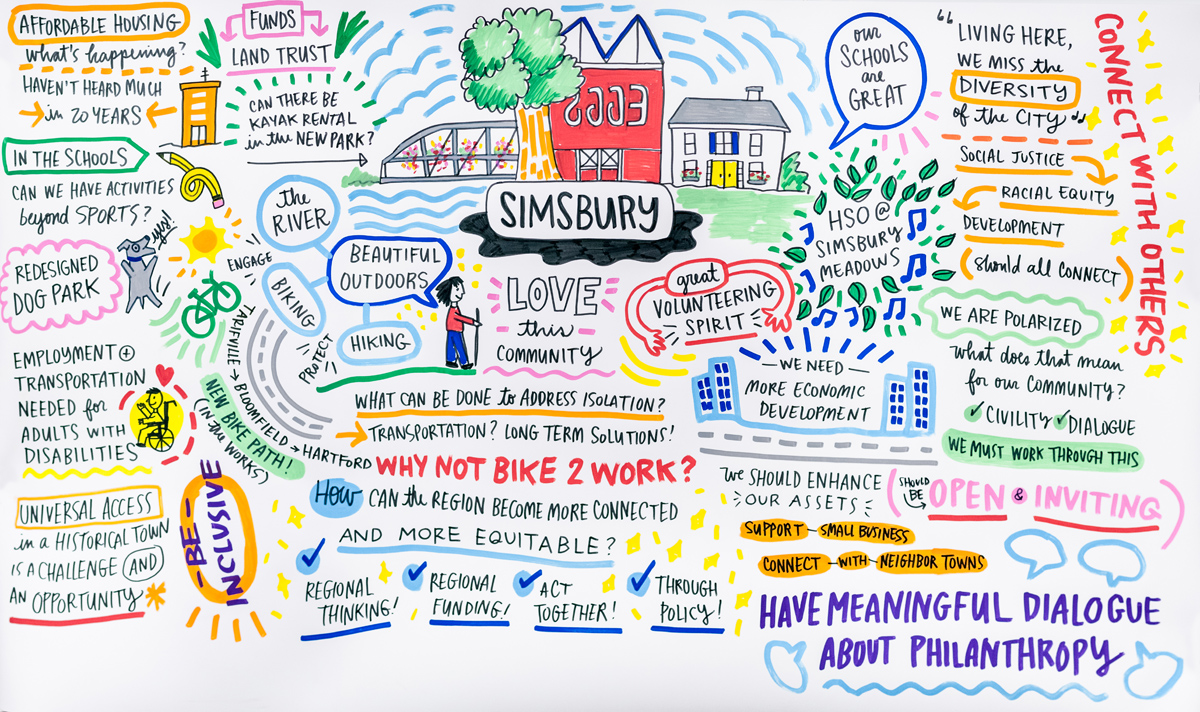 AFFORDABLE HOUSING
what's happening?
HAVEN'T HEARD MUCH
in 20 YEARS
FUNDS
LAND TRUST
CAN THERE BE
KAYAK RENTAL
in the NEW PARK?
IN THE SCHOOLS
CAN WE HAVE ACTIVITIES
beyond SPORTS?
yes!
REDESIGNED
DOG PARK
EMPLOYMENT +
TRANSPORTATION
NEEDED for
ADULTS WITH
DISABILITIES
UNIVERSAL ACCESS
in a HISTORICAL TOWN
IS A CHALLENGE AND
AN OPPORTUNITY
-BE-
INCLUSIVE
the
RIVER
BEAUTIFUL
OUTDOORS
BIKING
HIKING
ENGAGE
PROTECT
TARIFFVILLE → BLOOMFIELD → HARTFORD
NEW BIKE PATH!
(IN the WORKS)
SIMSBURY
LOVE
this
COMMUNITY
great
VOLUNTEERING
SPIRIT
WHAT CAN BE DONE to ADDRESS ISOLATION?
TRANSPORTATION? LONG TERM SOLUTIONS!
WHY NOT BIKE 2 WORK?
How CAN the REGION BECOME MORE CONNECTED
AND MORE EQUITABLE?
REGIONAL
THINKING!
REGIONAL
FUNDING!
ACT
TOGETHER!
THROUGH
POLICY!
our
SCHOOLS
are
GREAT
HSO @
SIMSBURY
MEADOWS
WE NEED
MORE ECONOMIC
DEVELOPMENT
"LIVING HERE,
WE MISS the
DIVERSITY
of the CITY"
SOCIAL JUSTICE
RACIAL EQUITY
DEVELOPMENT
(should all CONNECT)
CONNECT WITH OTHERS
WE ARE POLARIZED
what does that mean
for our COMMUNITY?
✓ CIVILITY ✓ DIALOGUE
WE MUST WORK THROUGH THIS
WE SHOULD ENHANCE
OUR ASSETS
(SHOULD BE OPEN & INVITING)
SUPPORT - SMALL BUSINESS
CONNECT - WITH - NEIGHBOR TOWNS
HAVE MEANINGFUL DIALOGUE
ABOUT PHILANTHROPY